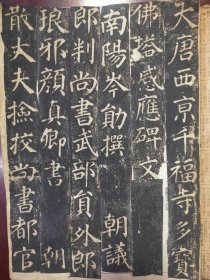 大唐西京千福寺多寶
佛塔感應碑文
南陽岑勛撰 朝議
郎判尚書武部員外郎
琅邪顏真卿書 朝
散大夫撿挍尚書都官